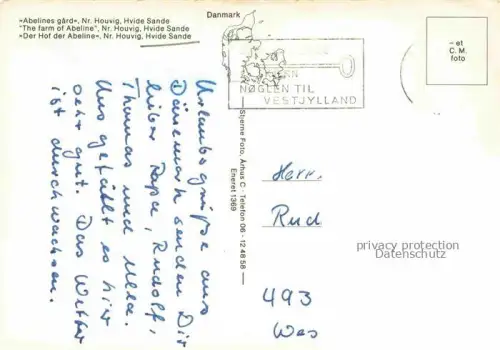 »Abelines gård«, Nr. Houvig, Hvide Sande
"The farm of Abeline", Nr. Houvig, Hvide Sande
»Der Hof der Abeline«, Nr. Houvig, Hvide Sande
Danmark
NØGLEN TIL
VESTJYLLAND
– et
C. M.
foto
Urlaubsgrüße aus
Dänemark senden Dir
lieber Papa, Rudolf,
Thomas und
Uns gefällt es hier
sehr gut. Das Wetter
ist durchwachsen.
Stjerne Foto, Århus C - Telefon 06 - 12 48 58
Eneret 1369
Herr.
Rud
privacy protection
Datenschutz
493
Wes